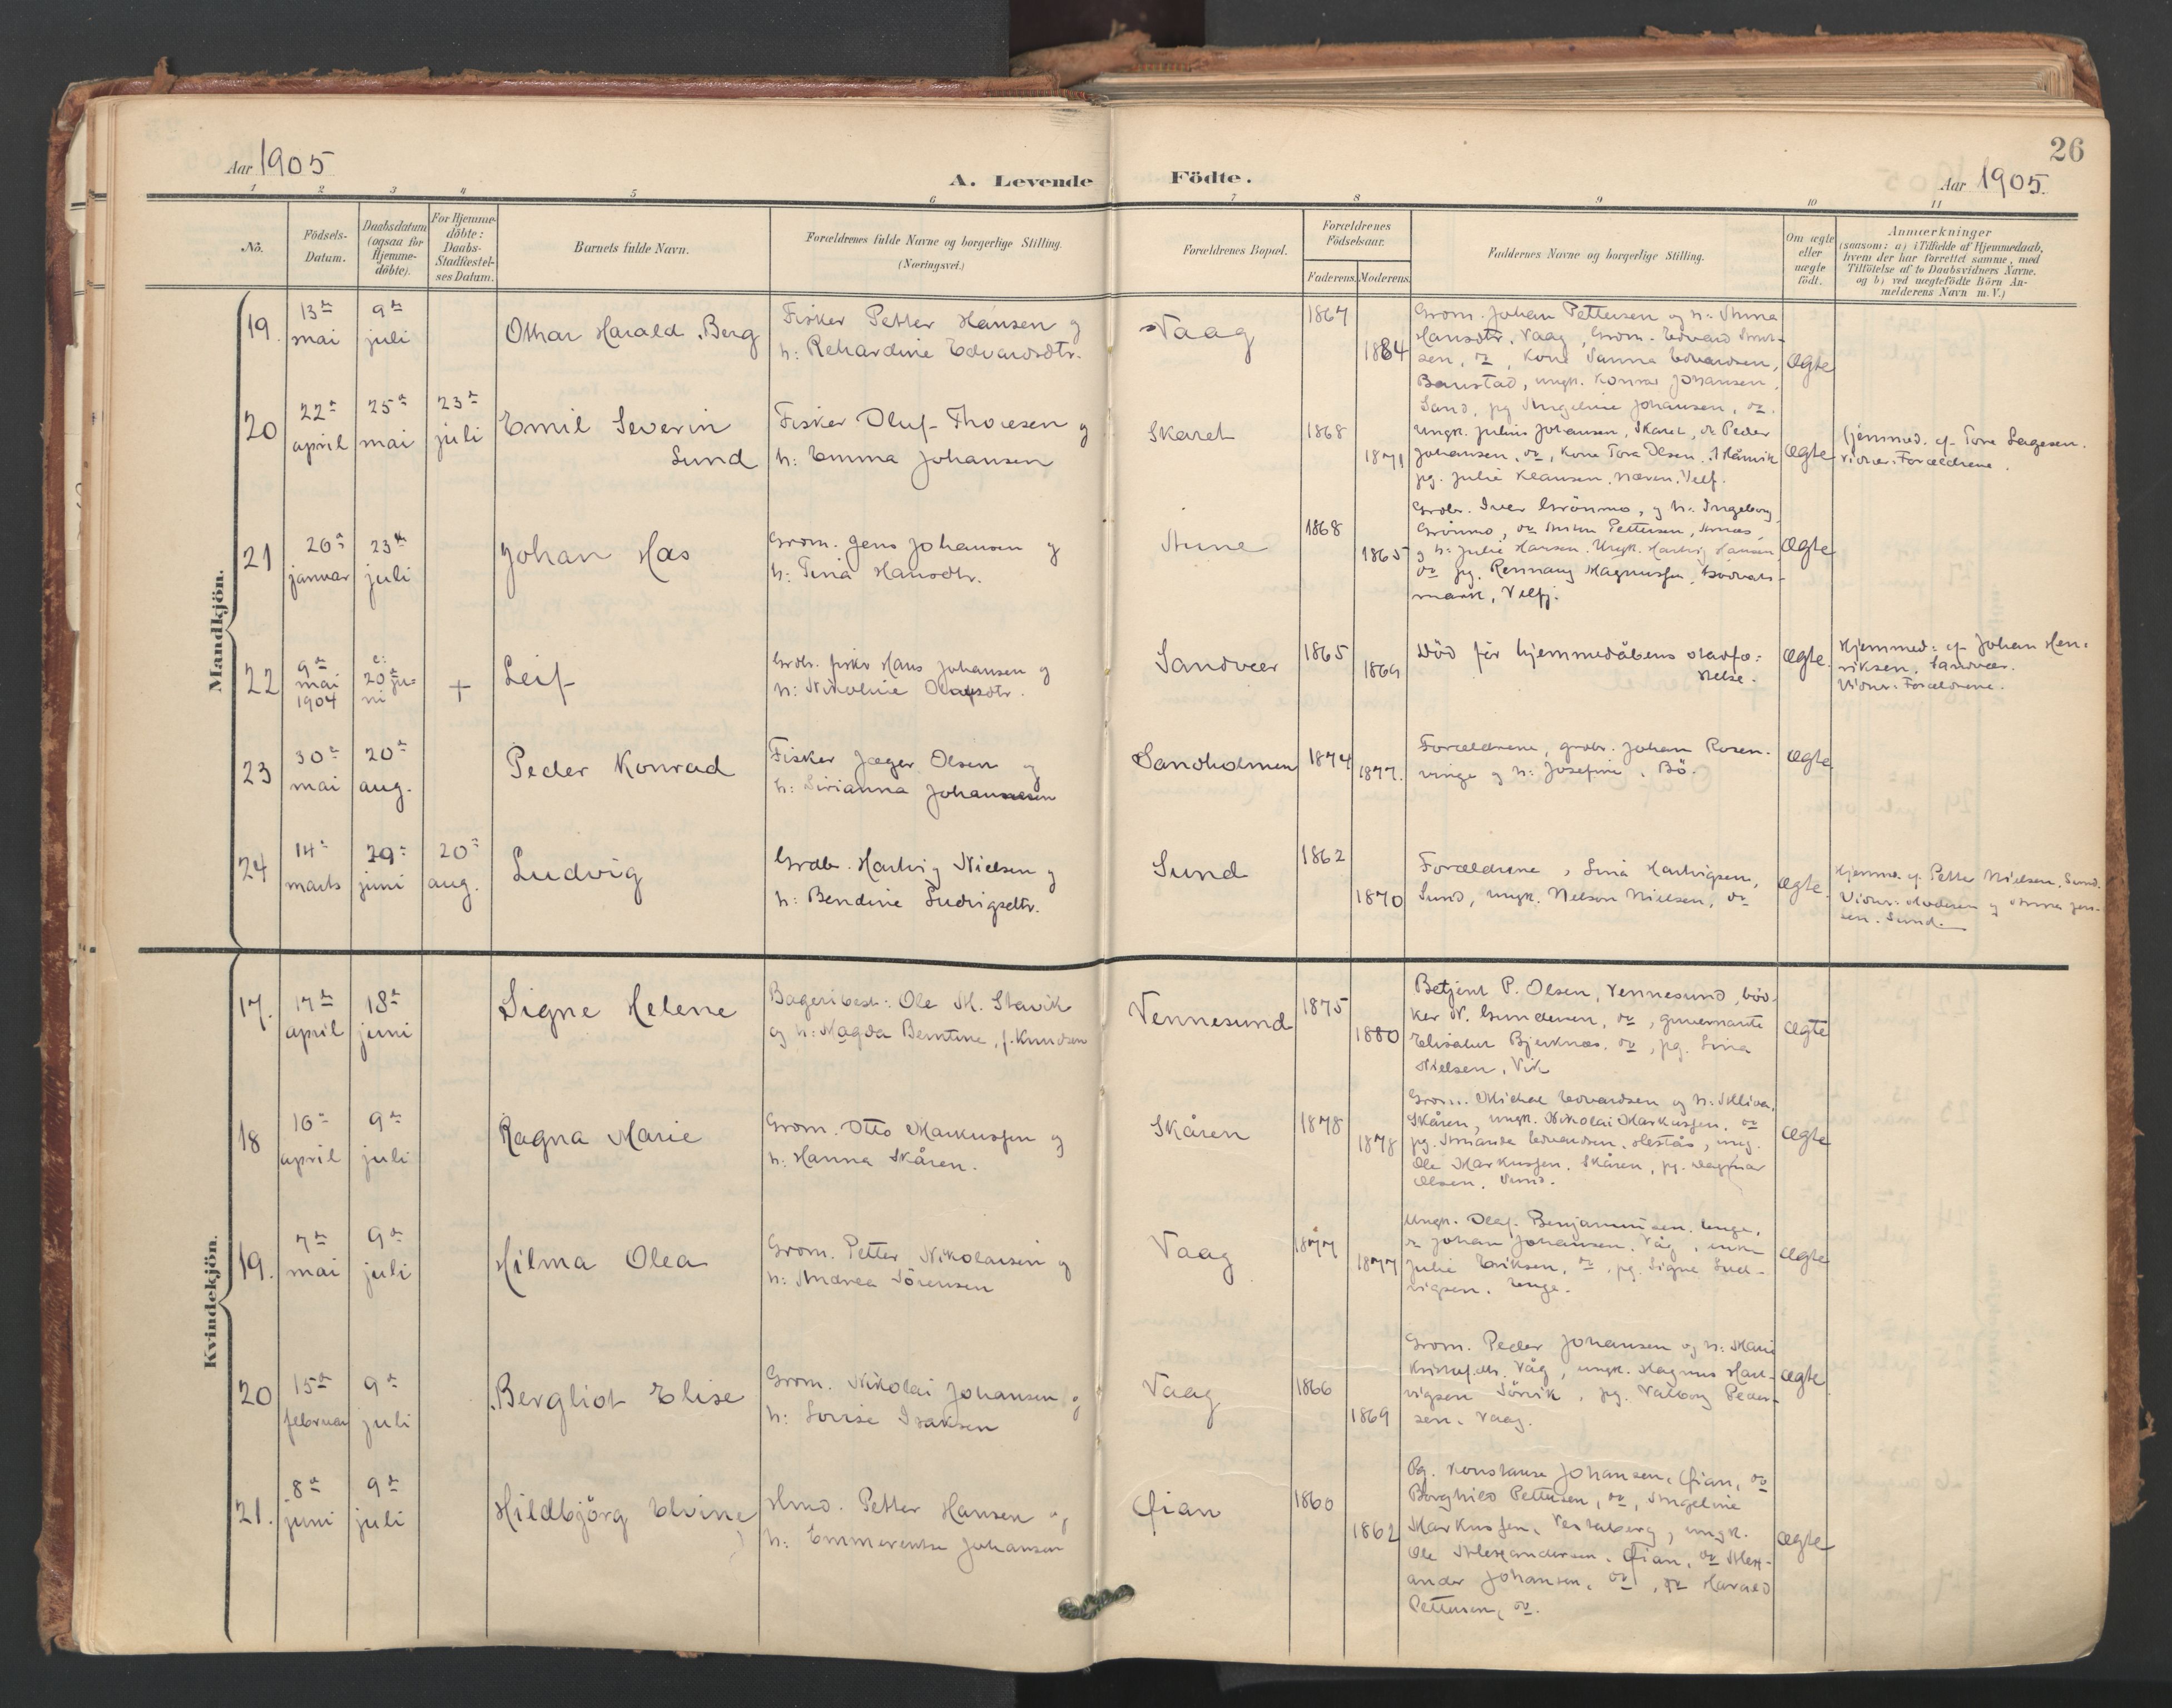 Aar 1905
A. Levende Födte.
26
Aar 1905.
1 2 3 4 5 6 7 8 9 10 11
Nö.
Födsels-
Datum.
Daabsdatum
(ogsaa for
Hjemme-
döbte).
For Hjemme-
döbte:
Daabs-
Stadfæstel-
ses Datum.
Barnets fulde Navn.
Forældrenes fulde Navne og borgerlige Stilling.
(Næringsvei.)
Forældrenes Bopæl.
Forældrenes
Födselsaar.
Faderens. Moderens.
Faddernes Navne og borgerlige Stilling.
Om ægte
eller
uægte
födt.
Anmærkninger
(saasom: a) i Tilfælde af Hjemmedaab,
hvem der har forrettet samme, med
Tilföielse af to Daabsvidners Navne,
og b) ved uægtefödte Börn An-
melderens Navn m. V.)
Mandkjön.
19.
13de
mai
9de
juli
Othar Harald Berg
Fisker Petter Hansen og
h: Rehardine Edvardsdtr.
Vaag
1867
1884
Grom. Johan Pettersen og h: Anna
Hansdtr. Vaag, Grom. Edvard
sen, do, Kone Sanna Edvardsen,
Baustad, ungk. Konrad Johansen,
Sand, pg Angeline Johansen, do.
ægte
20
22de
april
25de
mai
23de
juli
Emil Severin
Sund
Fisker Oluf Thoresen og
h: Emma Johansen
Skaret
1868
1871
Ungk. Julius Johansen, Skaret, do Peder
Johansen, do, Kone Tora Olsen,
pg. Julie Klausen, Velf.
ægte
Hjemmed. af Tore Lagesen.
Vidner: Forældrene.
21
26de
januar
23de
juli
Johan Has
Grom. Jens Johansen og
h: Tina Hansdtr.
Aune
1868
1865
Grdbr. Iver Grönmo, og h: Ingeborg
Grönmo, do Pettersen,
og h: Julie Hansen. Ungk. Hartvig Hansen
do pg. Rennaug Magnussen,
mark, Velfj.
ægte
22
9de
mai
1904
20de ju-
ni
+
Leif
Grdbr. fisker Hans Johansen og
h: Nikoline Olufsdtr.
Sandvær
1865
1869
Död för hjemmedåbens stadfæ=
stelse.
ægte.
Hjemmed: af Johan Hen-
riksen, Sandvær.
Vidner: Forældrene.
23
30de
mai
20de
aug.
Peder Konrad
Fisker Jæger Olsen og
h: Sirianna Johannesen
Sandholmen
1874
1877.
Forældrene, grdbr. Johan Rosen-
vinge og h: Josefine, Bö.
ægte
24
14de
marts
29de
juni
20de
aug.
Ludvig
Grdb. Hartvig Nielsen og
h: Bendine Ludvigsdtr.
Sund
1862
1870
Forældrene, Lina Hartvigsen,
Sund, ungk. Nelson Nielsen, do
ægte.
Hjemmed. af Petter Nielsen, Sund.
Vidner: Moderen og Anna Jen-
sen. Sund.
Kvindekjön.
17.
17de
april
18de
juni
Signe Helene
Bageribest: Ole M. Stavik
og h: Magda Berntine, f. Knudsen
Vennesund
1875
1880
Betjent P. Olsen, Vennesund, böd-
ker N. Gundersen, do, guvernante
Elisabet Bjerknæs, do, pg. Lina
Nielsen, Vik
ægte
18
16de
april
9de
juli
Ragna Marie
Grom. Otto Markussen og
h. Hanna Skåren.
Skåren
1878
1878
Grom. Mickal Edvardsen og h:
Skåren, ungk. Nikolai Markussen, do
pg. Amanda Edvardsen, ung.
Ole Markussen, Skåren, pg. Dagmar
Olsen, Sund.
ægte
19.
7de
mai
9de
juli
Hilma Olea
Grom. Petter Nikolaisen og
h: Andrea Sörensen
Vaag
1877
1877
Ungk. Olaf Benjaminsen,
do Johan Johansen, Våg, enke
Julie Eriksen, do, pg. Signe Lud-
vigsen,
ægte
20
15de
februar
9de
juli
Bergliot Elise
Grom. Nikolai Johansen og
h: Lovise Isaksen
Vaag
1866
1869
Grom. Peder Johansen og h: Marie
Våg, ungk. Magnus Hart-
vigsen Sörvik, pg. Valborg Peder-
sen, Vaag.
ægte
21.
8de
juni
9de
juli
Hildbjörg Elvine
Hmd. Petter Hansen og
h: Emmerentse Johansen
Qian
1860
1862
Pg. Konstanse Johansen, Qian, do
Borghild Pettersen, do, Angeline
Markussen, Vestaberg, ungk.
Ole Aleksandersen, Qian, do Alex-
ander Johansen, do, do Harald
Pettersen, do.
ægte